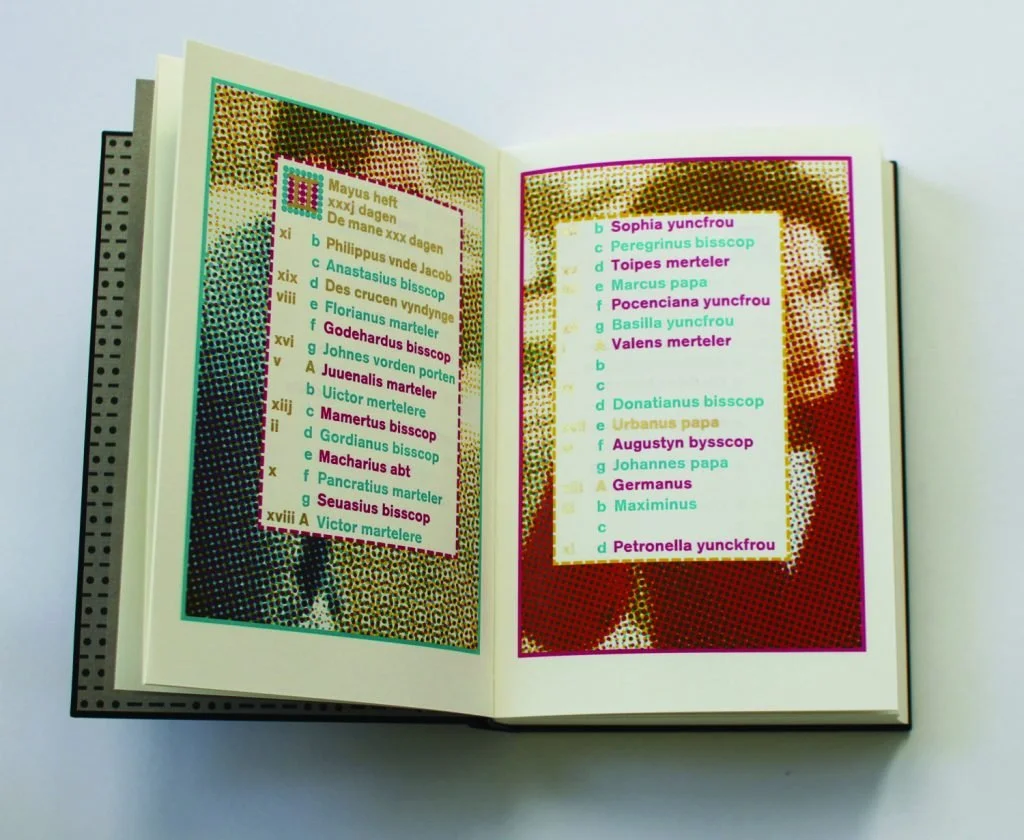 Mayus heft
xxxj dagen
De mane xxx dagen
xi b Philippus vnde Jacob
c Anastasius bisscop
xix d Des crucen vyndynge
viii e Florianus marteler
f Godehardus bisscop
xvi g Johnes vorden porten
v A Juuenalis marteler
b Uictor mertelere
xiij c Mamertus bisscop
ii d Gordianus bisscop
e Macharius abt
x f Pancratius marteler
g Seuasius bisscop
xviii A Victor martelere
b Sophia yuncfrou
c Peregrinus bisscop
d Toipes merteler
e Marcus papa
f Pocenciana yuncfrou
g Basilla yuncfrou
Valens merteler
b
c
d Donatianus bisscop
e Urbanus papa
f Augustyn bysscop
g Johannes papa
A Germanus
b Maximinus
c
d Petronella yunckfrou